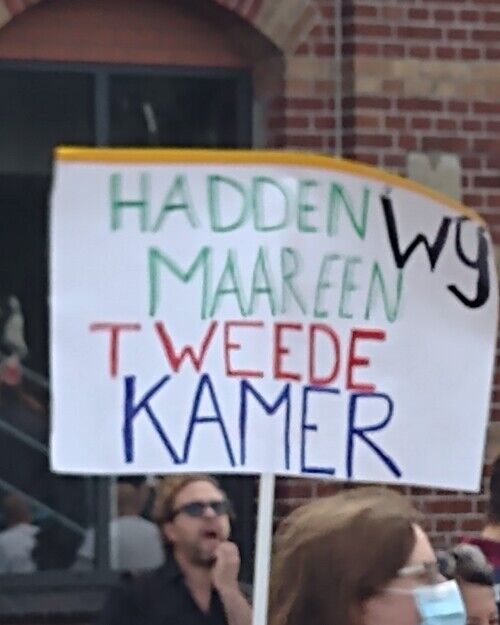 HADDEN WY
MAAR EEN
TWEEDE
KAMER